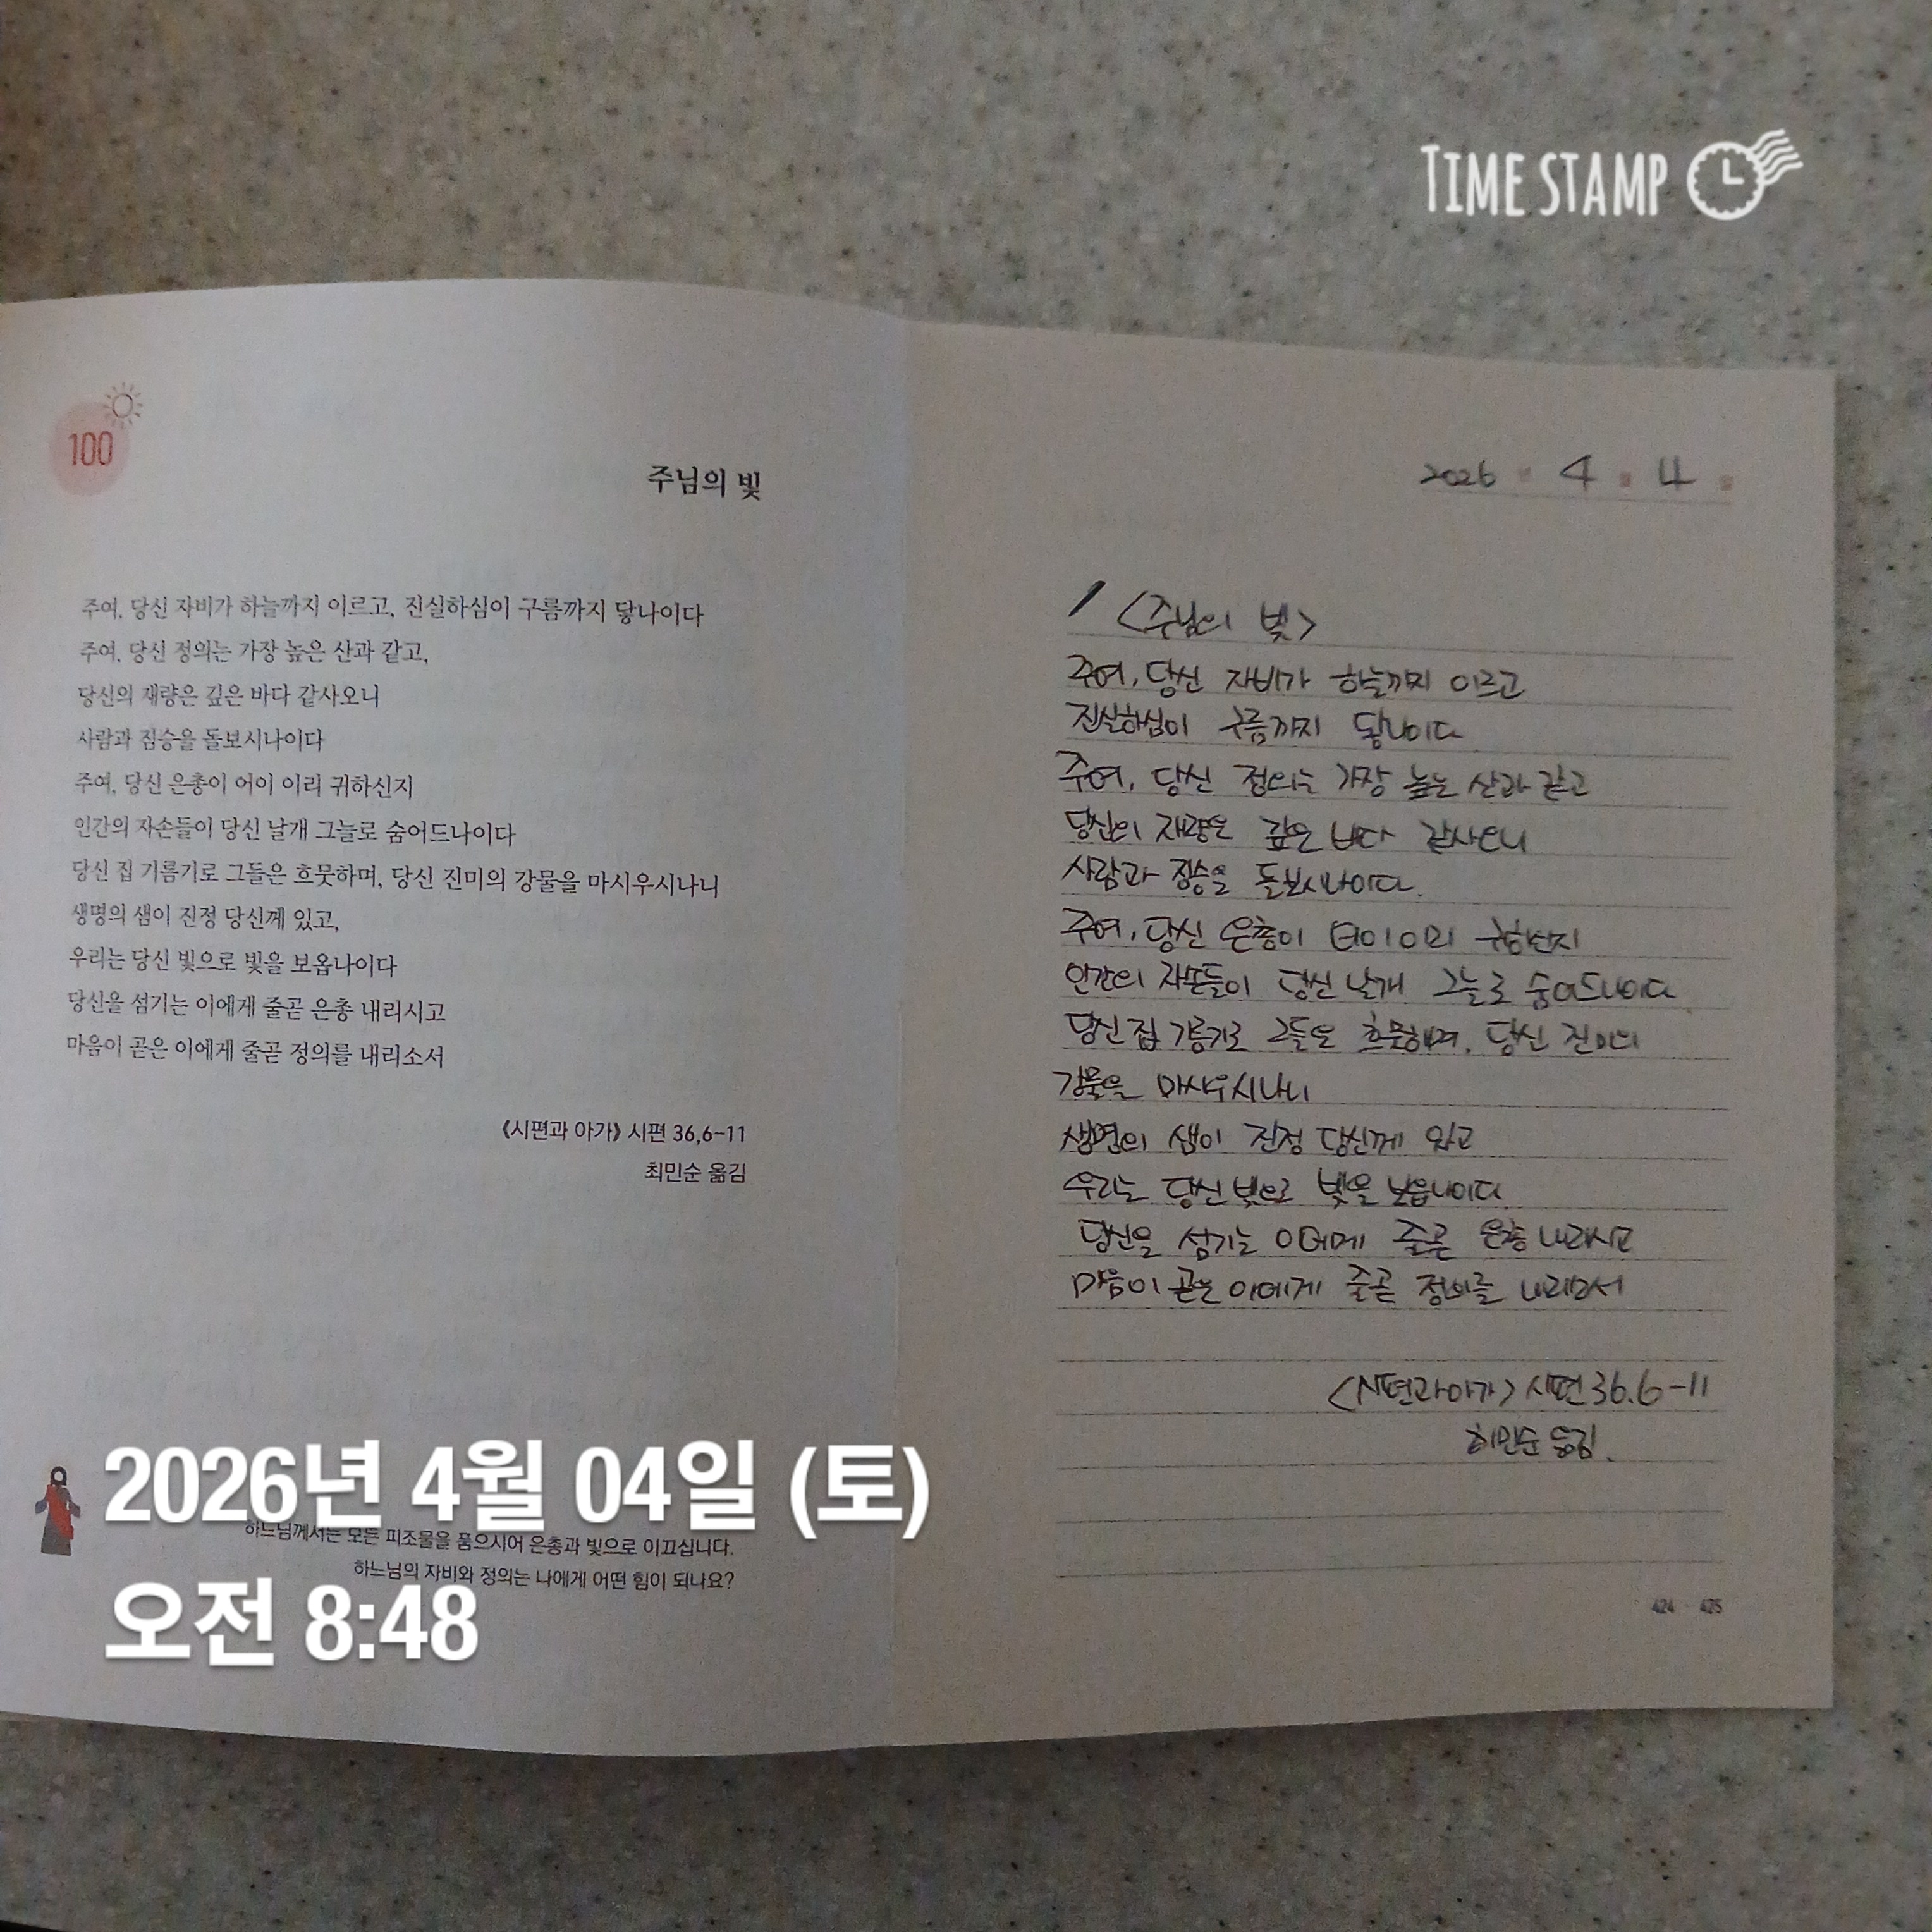 TIME STAMP
100
주님의 빛
주여, 당신 자비가 하늘까지 이르고, 진실하심이 구름까지 닿나이다
주여, 당신 정의는 가장 높은 산과 같고,
당신의 재량은 깊은 바다 같사오니
사람과 짐승을 돌보시나이다
주여, 당신 은총이 어이 이리 귀하신지
인간의 자손들이 당신 날개 그늘로 숨어드나이다
당신 집 기름기로 그들은 흐뭇하며, 당신 진미의 강물을 마시우시나니
생명의 샘이 진정 당신께 있고,
우리는 당신 빛으로 빛을 보옵나이다
당신을 섬기는 이에게 줄곧 은총 내리시고
마음이 곧은 이에게 줄곧 정의를 내리소서
《시편과 아가》 시편 36,6-11
최민순 옮김
하느님께서는 모든 피조물을 품으시어 은총과 빛으로 이끄십니다.
하느님의 자비와 정의는 나에게 어떤 힘이 되나요?
2026 4 4
<주님의 빛>
주여, 당신 자비가 하늘까지 이르고
진실하심이 구름까지 닿나이다
주여, 당신 정의는 가장 높은 산과 같고
당신의 재량은 깊은 바다 같사오니
사람과 짐승을 돌보시나이다.
주여, 당신 은총이 어이 이리
인간의 자손들이 당신 날개 그늘로 숨어드나이다
당신 집 기름기로 그들은 흐뭇하며, 당신 진미의
강물을 마시우시나니
생명의 샘이 진정 당신께 있고
우리는 당신 빛으로 빛을 보옵나이다.
당신을 섬기는 이에게 줄곧 은총 내리시고
마음이 곧은 이에게 줄곧 정의를 내리소서
<시편과 아가> 시편 36.6-11
최민순 옮김.
424 425
2026년 4월 04일 (토)
오전 8:48